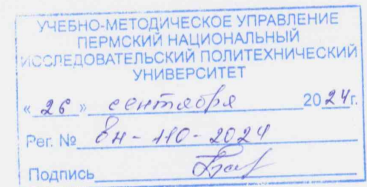 УЧЕБНО-МЕТОДИЧЕСКОЕ УПРАВЛЕНИЕ
ПЕРМСКИЙ НАЦИОНАЛЬНЫЙ
ИССЛЕДОВАТЕЛЬСКИЙ ПОЛИТЕХНИЧЕСКИЙ
УНИВЕРСИТЕТ
«26» сентября 2024г.
Рег. № 8н-110-2024
Подпись